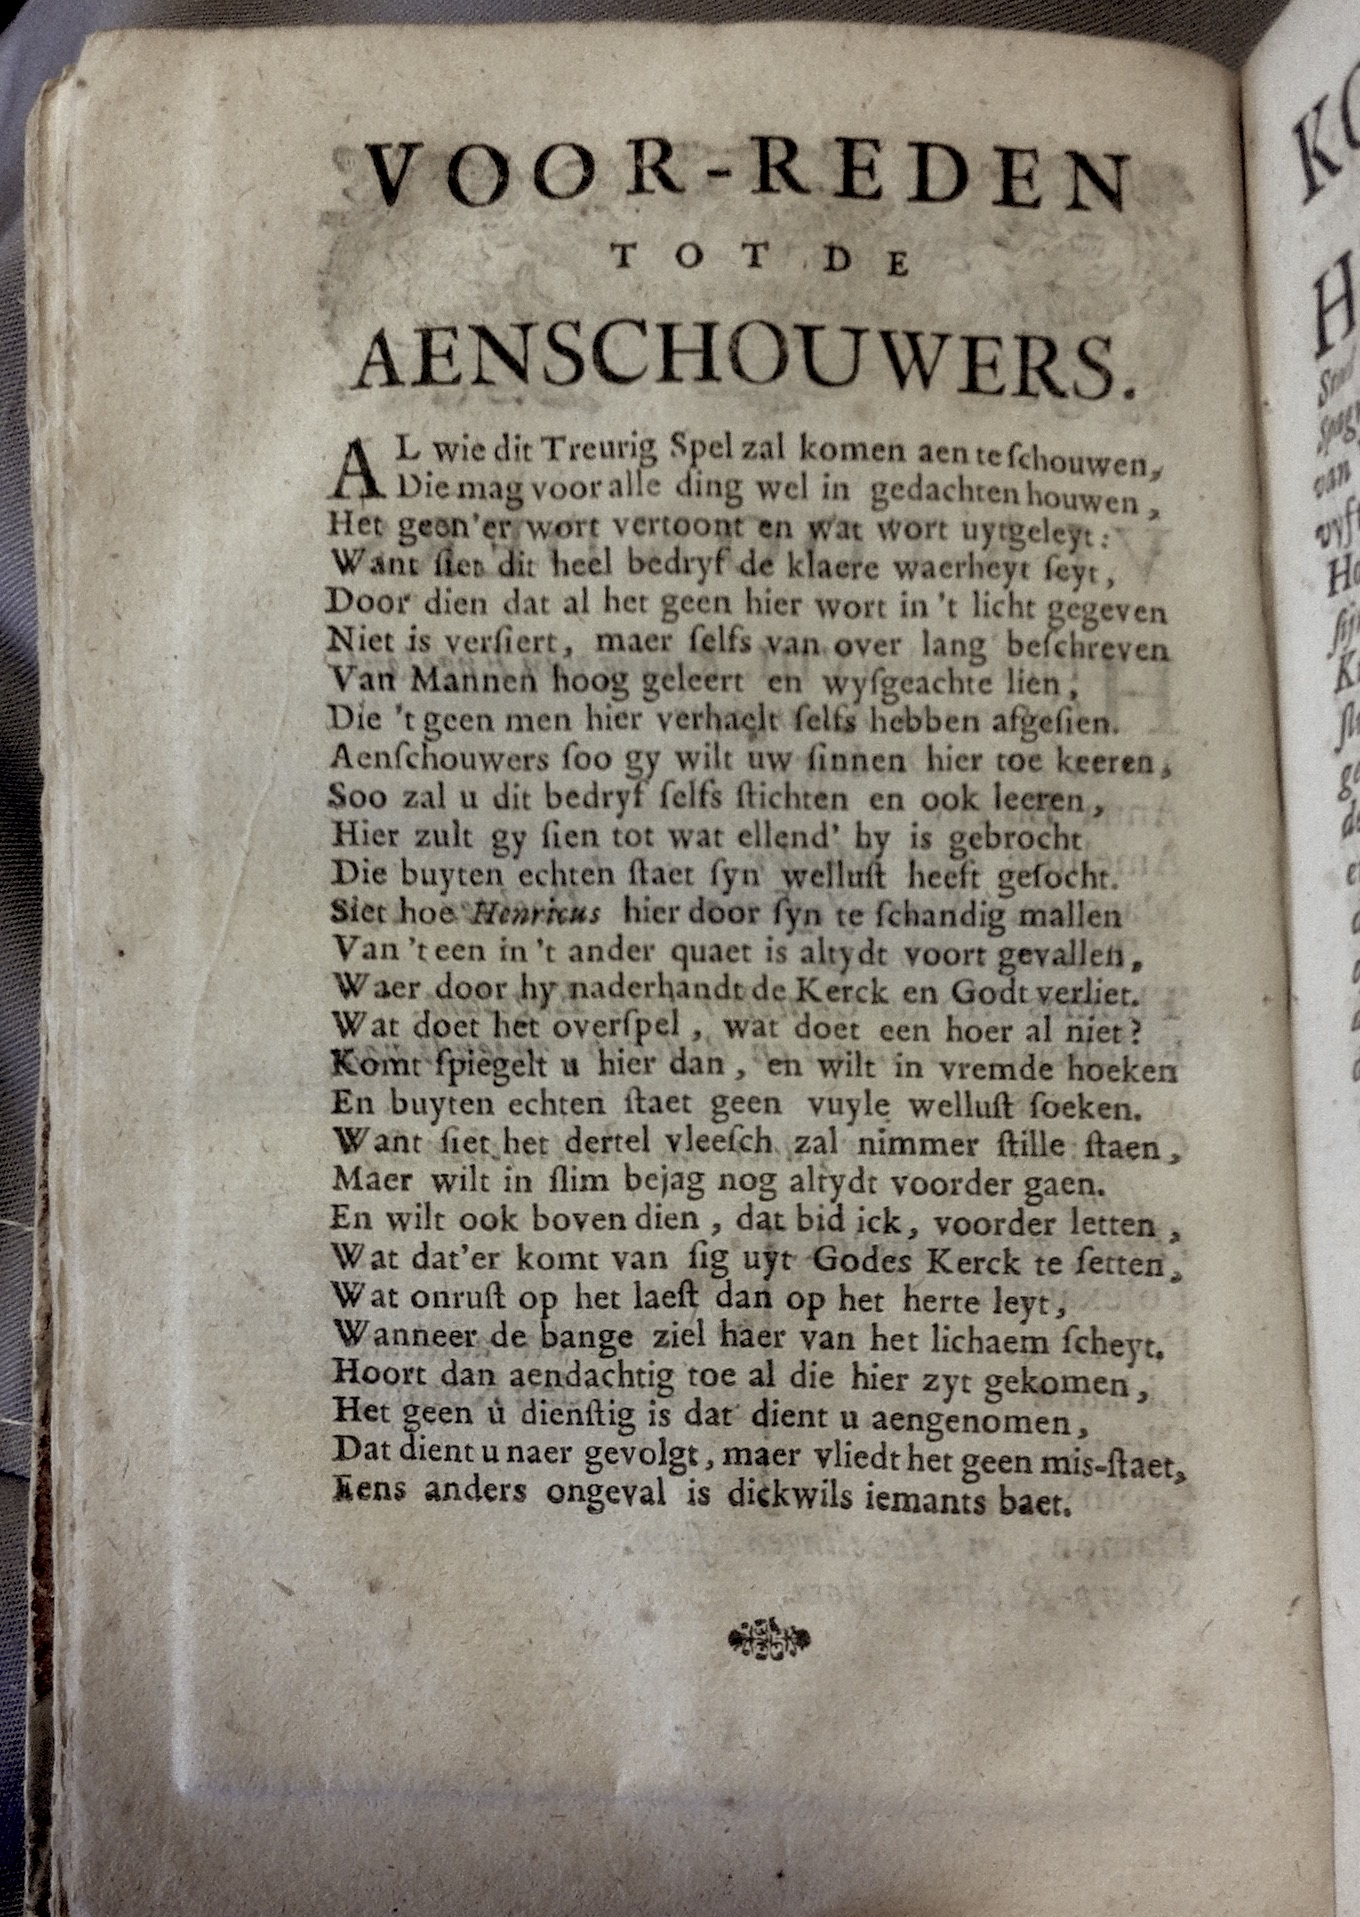 VOOR-REDEN
TOT DE
AENSCHOUWERS.
AL wie dit Treurig Spel zal komen aen te ſchouwen,
Die mag voor alle ding wel in gedachten houwen,
Het geen'er wort vertoont en wat wort uytgeleyt:
Want ſiet dit heel bedryf de klaere waerheyt ſeyt,
Door dien dat al het geen hier wort in 't licht gegeven
Niet is verſiert, maer ſelfs van over lang beſchreven
Van Mannen hoog geleert en wyſgeachte lien,
Die 't geen men hier verhaelt ſelfs hebben afgeſien.
Aenſchouwers ſoo gy wilt uw ſinnen hier toe keeren,
Soo zal u dit bedryf ſelfs ſtichten en ook leeren,
Hier zult gy ſien tot wat ellend' hy is gebrocht
Die buyten echten ſtaet ſyn welluſt heeft geſocht.
Siet hoe Henricus hier door ſyn te ſchandig mallen
Van 't een in 't ander quaet is altydt voort gevallen,
Waer door hy naderhandt de Kerck en Godt verliet.
Wat doet het overſpel, wat doet een hoer al niet?
Komt ſpiegelt u hier dan, en wilt in vremde hoeken
En buyten echten ſtaet geen vuyle welluſt ſoeken.
Want ſiet het dertel vleeſch zal nimmer ſtille ſtaen,
Maer wilt in ſlim bejag nog altydt voorder gaen.
En wilt ook boven dien, dat bid ick, voorder letten,
Wat dat'er komt van ſig uyt Godes Kerck te ſetten,
Wat onruſt op het laeſt dan op het herte leyt,
Wanneer de bange ziel haer van het lichaem ſcheyt.
Hoort dan aendachtig toe al die hier zyt gekomen,
Het geen u dienſtig is dat dient u aengenomen,
Dat dient u naer gevolgt, maer vliedt het geen mis-ſtaet,
Eens anders ongeval is dickwils iemants baet.